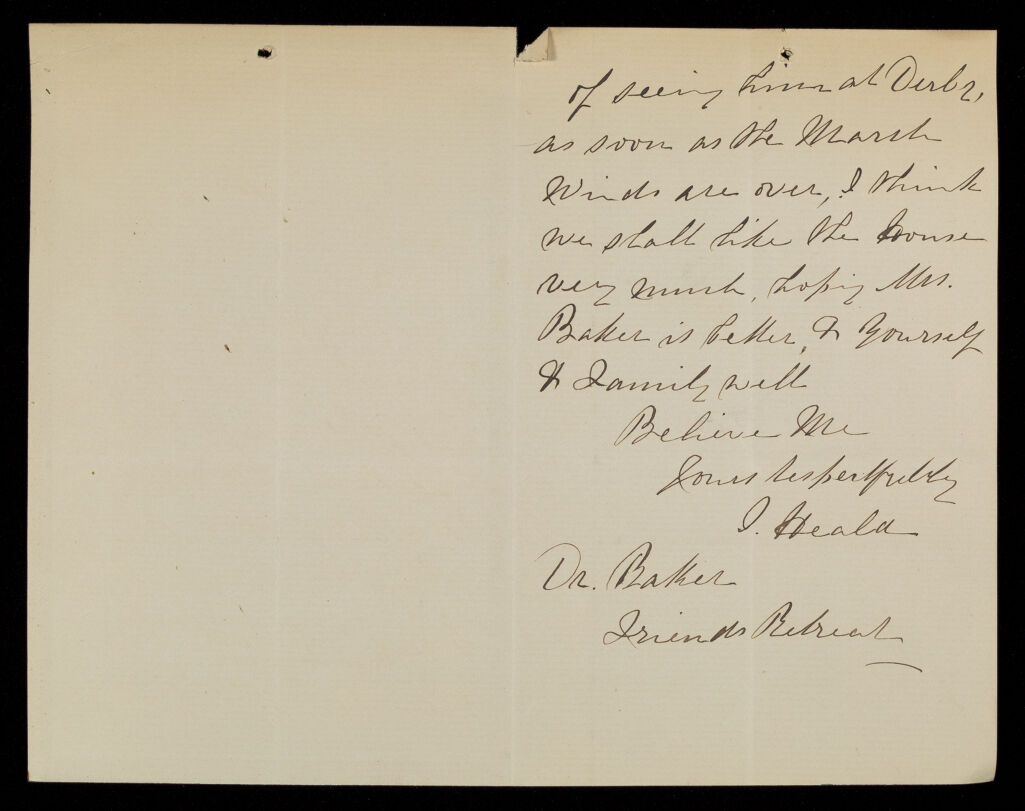 of seeing him at Derby,
as soon as the March
Winds are over, I think
we shall like the House
very much, hoping Mrs.
Baker is better, & Yourself
& Family well
Believe Me
Yours respectfully
J. Heald
Dr. Baker
Friends Retreat